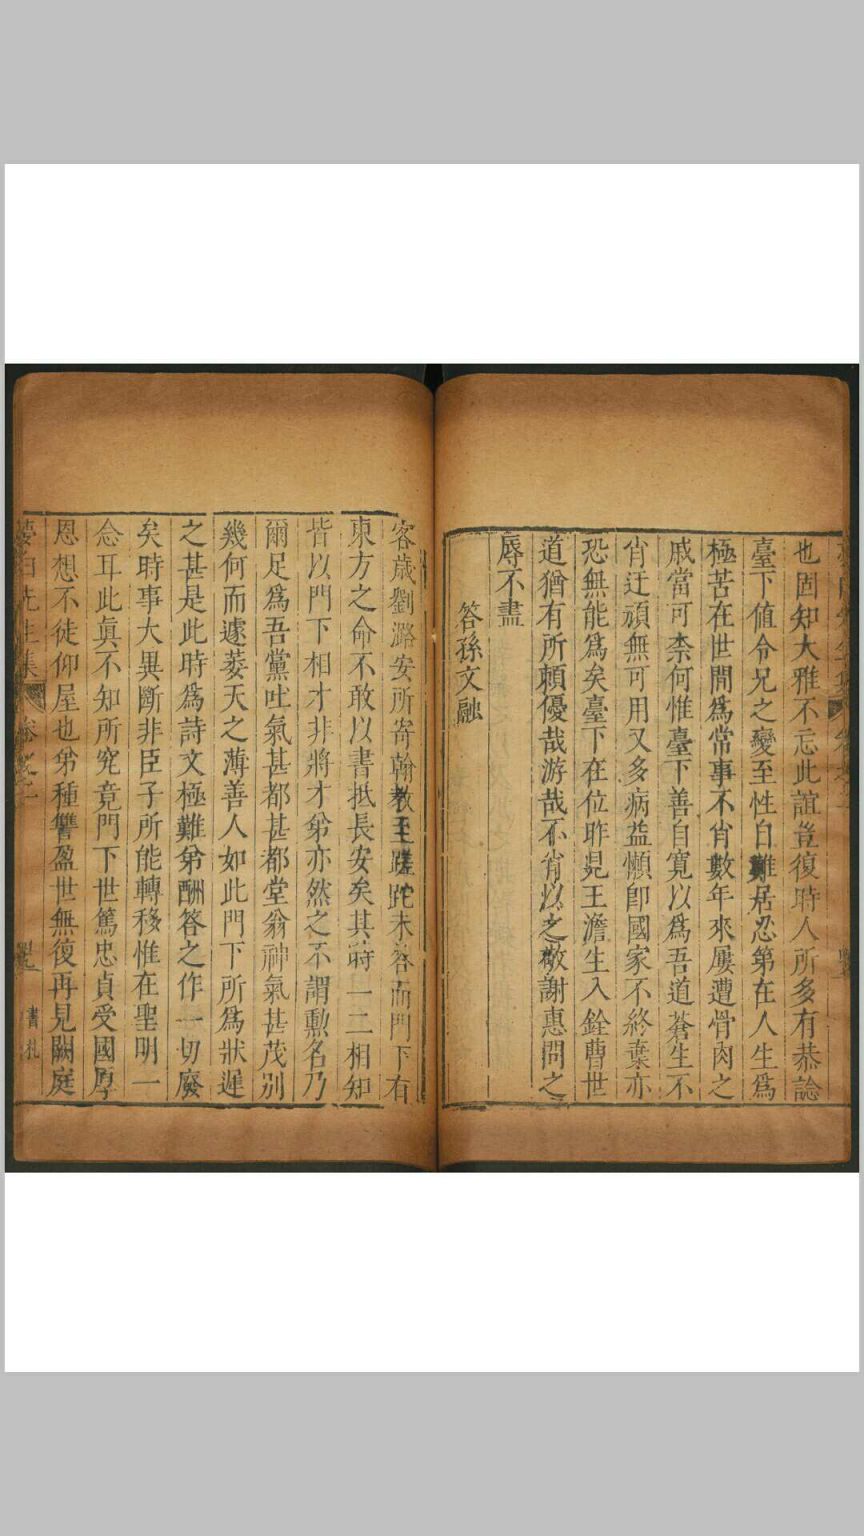 也固知大雅不忘此誼豈復時人所多有恭諗
臺下値令兄之變至性自難居忍第在人生爲
極苦在世間爲常事不肖數年來屢遭骨肉之
戚當可柰何惟臺下善自寬以爲吾道蒼生不
肖迂頑無可用又多病益懶卽國家不終棄亦
恐無能爲矣臺下在位昨見王澹生入銓曹世
道猶有所頼優哉游哉不肖以之敬謝惠問之
辱不盡
答孫文融
客歲劉潞安所寄翰教王蹉跎未答而門下有
東方之命不敢以書抵長安矣其時一二相知
皆以門下相才非將才弟亦然之不謂勲名乃
爾足爲吾黨吐氣甚都甚都堂翁神氣甚茂別
幾何而遽萎天之薄善人如此門下所爲狀遲
之甚是此時爲詩文極難弟酬答之作一切廢
矣時事大異斷非臣子所能轉移惟在聖明一
念耳此眞不知所究竟門下世篤忠貞受國厚
恩想不徒仰屋也弟種讐盈世無復再見闕庭
先生集 卷之二 書札